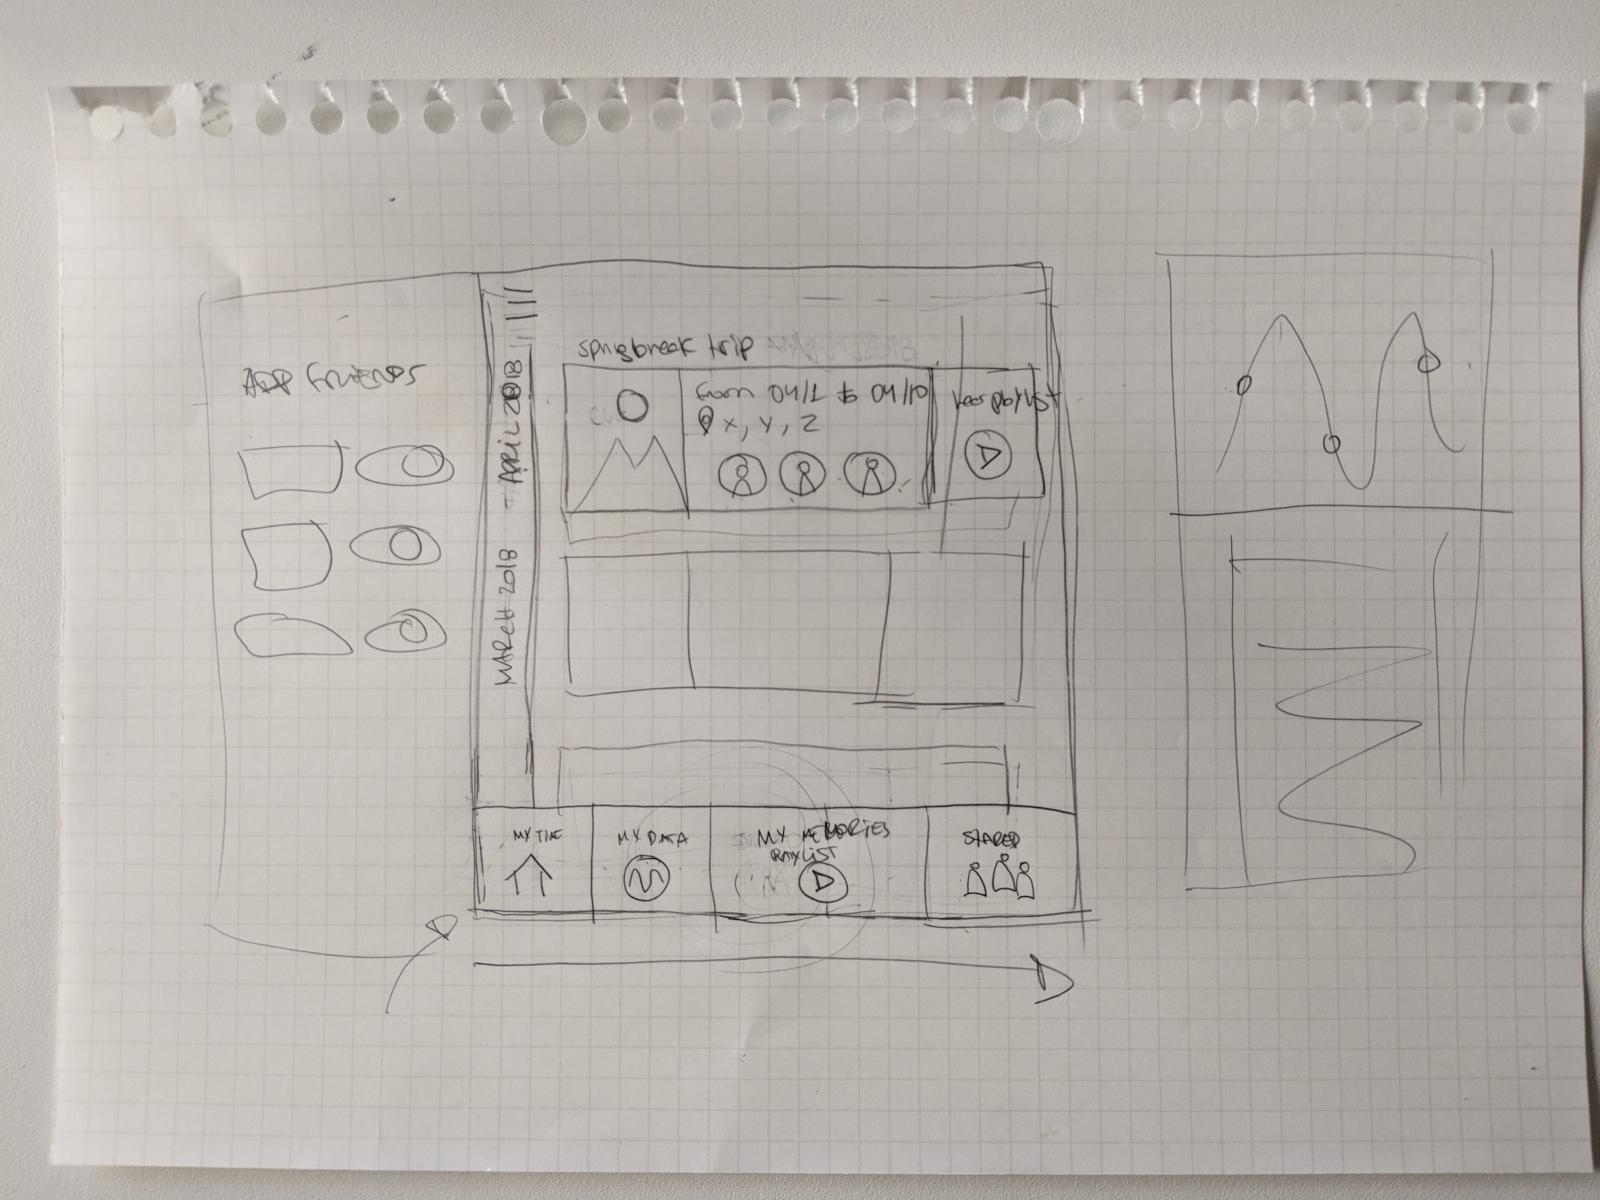 ADD FRIENDS
APRIL 2018
MARCH 2018
springbreak trip
from 04/1 to 04/10
x, y, z
hear playlist
MY TIME
MY DATA
MY MEMORIES
PLAYLIST
SHARED